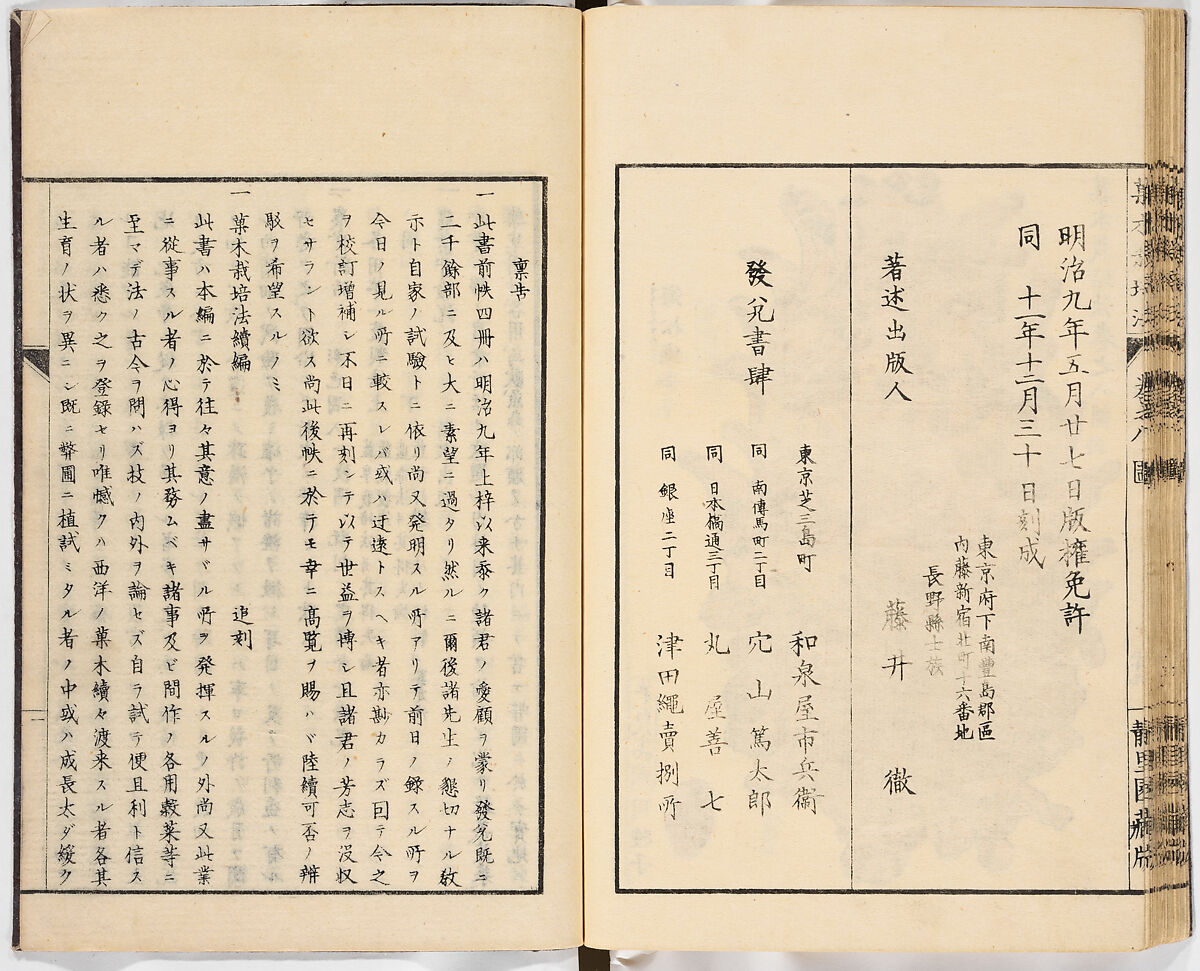 明治九年五月廿七日版權免許
同 十一年十二月三十日刻成
東京府下南豐島郡區
内藤新宿北町十六番地
長野縣士族
著述出版人 藤井 徹
發兌書肆
東京芝三島町 和泉屋市兵衞
同 南傳馬町二丁目 穴山篤太郎
同 日本橋通三丁目 丸屋善七
同 銀座二丁目 津田繩賣捌所
卷之八
靜里園藏版
稟告
一 此書前帙四冊ハ明治九年上梓以来忝ク諸君ノ愛顧ヲ蒙リ發兌既ニ
二千餘部ニ及ヒ大ニ素望ニ過タリ然ルニ爾後諸先生ノ懇切ナル敎
示ト自家ノ試驗トニ依リ尚又発明スル所アリテ前日ノ録スル所ヲ
今日ノ見ル所ニ較スレバ或ハ迂遠トスヘキ者亦尠カラズ回テ今之
ヲ校訂増補シ不日ニ再刻シテ以テ世益ヲ博シ且諸君ノ芳志ヲ没収
セサラント欲ス尚此後帙ニ於テモ幸ニ高覧ヲ賜ハヾ陸續可否ノ辨
駁ヲ希望スルノミ
一 菓木栽培法續編 追刻
此書ハ本編ニ於テ往々其意ノ盡サヾル所ヲ発揮スルノ外尚又此業
ニ從事スル者ノ心得ヨリ其務ムベキ諸事及ビ間作ノ各用穀菜等ニ
至マデ法ノ古今ヲ問ハズ技ノ内外ヲ論セズ自ラ試テ便且利ト信ス
ル者ハ悉ク之ヲ登錄セリ唯憾クハ西洋ノ菓木續々渡来スル者各其
生育ノ状ヲ異ニシ既ニ弊圃ニ植試ミタル者ノ中或ハ成長太ダ緩ク